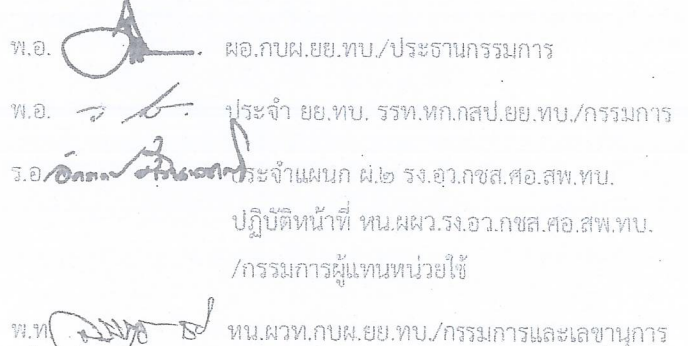 พ.อ. ผอ.กบผ.ยย.ทบ./ประธานกรรมการ
พ.อ. ประจำ ยย.ทบ. รรท.หก.กสป.ยย.ทบ./กรรมการ
ร.อ. ประจำแผนก ผ.๒ รง.อว.กซส.ศอ.สพ.ทบ.
ปฏิบัติหน้าที่ หน.ผผว.รง.อว.กซส.ศอ.สพ.ทบ.
/กรรมการผู้แทนหน่วยใช้
พ.ท. หน.ผวท.กบผ.ยย.ทบ./กรรมการและเลขานุการ